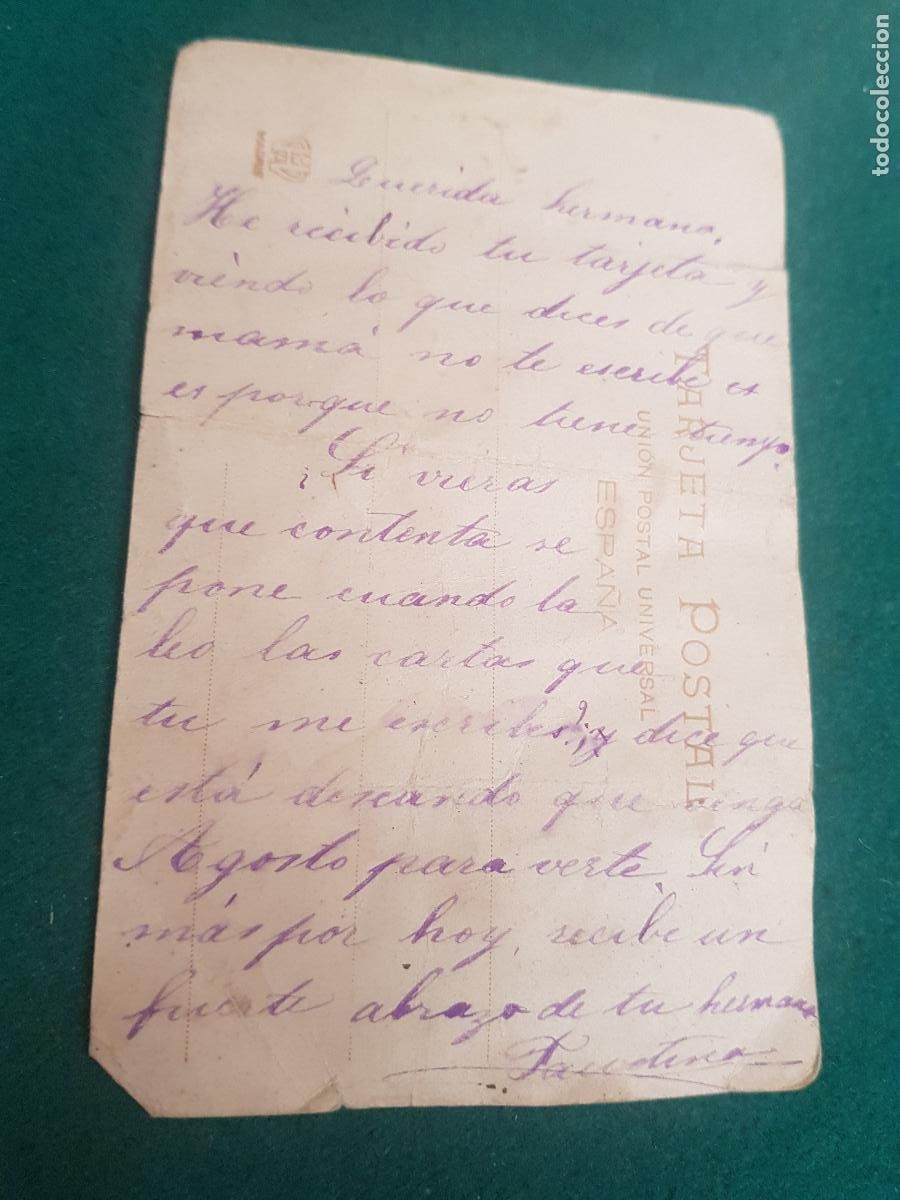 Querida hermana.
He recibido tu tarjeta y
viendo lo que dices de que
mamá no te escribe es
es porque no tiene tiempo.
¡Si vieras
que contenta se
pone cuando la
leo las cartas que
tu me escribes! y dice que
está deseando que venga
Agosto para verte. Sin
más por hoy, recibe un
fuerte abrazo de tu hermana
Faustina
TARJETA POSTAL
UNIÓN POSTAL UNIVERSAL
ESPAÑA
MADRID
todocoleccion